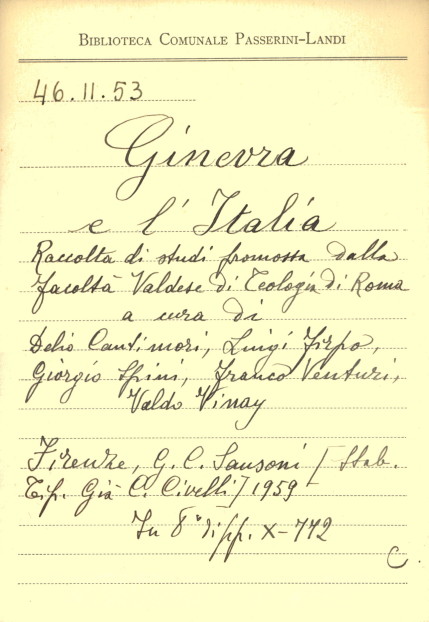 BIBLIOTECA COMUNALE PASSERINI-LANDI
46.11.53
Ginevra
e l'Italia
Raccolta di studi promossa dalla
facoltà Valdese di Teologia di Roma
a cura di
Delio Cantimori, Luigi Firpo,
Giorgio Spini, Franco Venturi,
Valdo Vinay
Firenze, G. C. Sansoni [Stab.
Tip. Già C. Civelli] 1959
In 8° di pp. X-772
C.